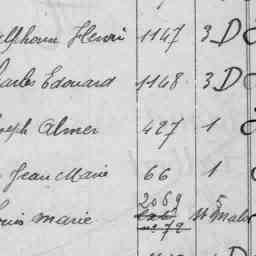 Alphonse Henri 1147 3 D
Charles Edouard 1148 3 D
Joseph Almer 427 1
Jean Marie 66 1
2069
Louis Marie
nº 72